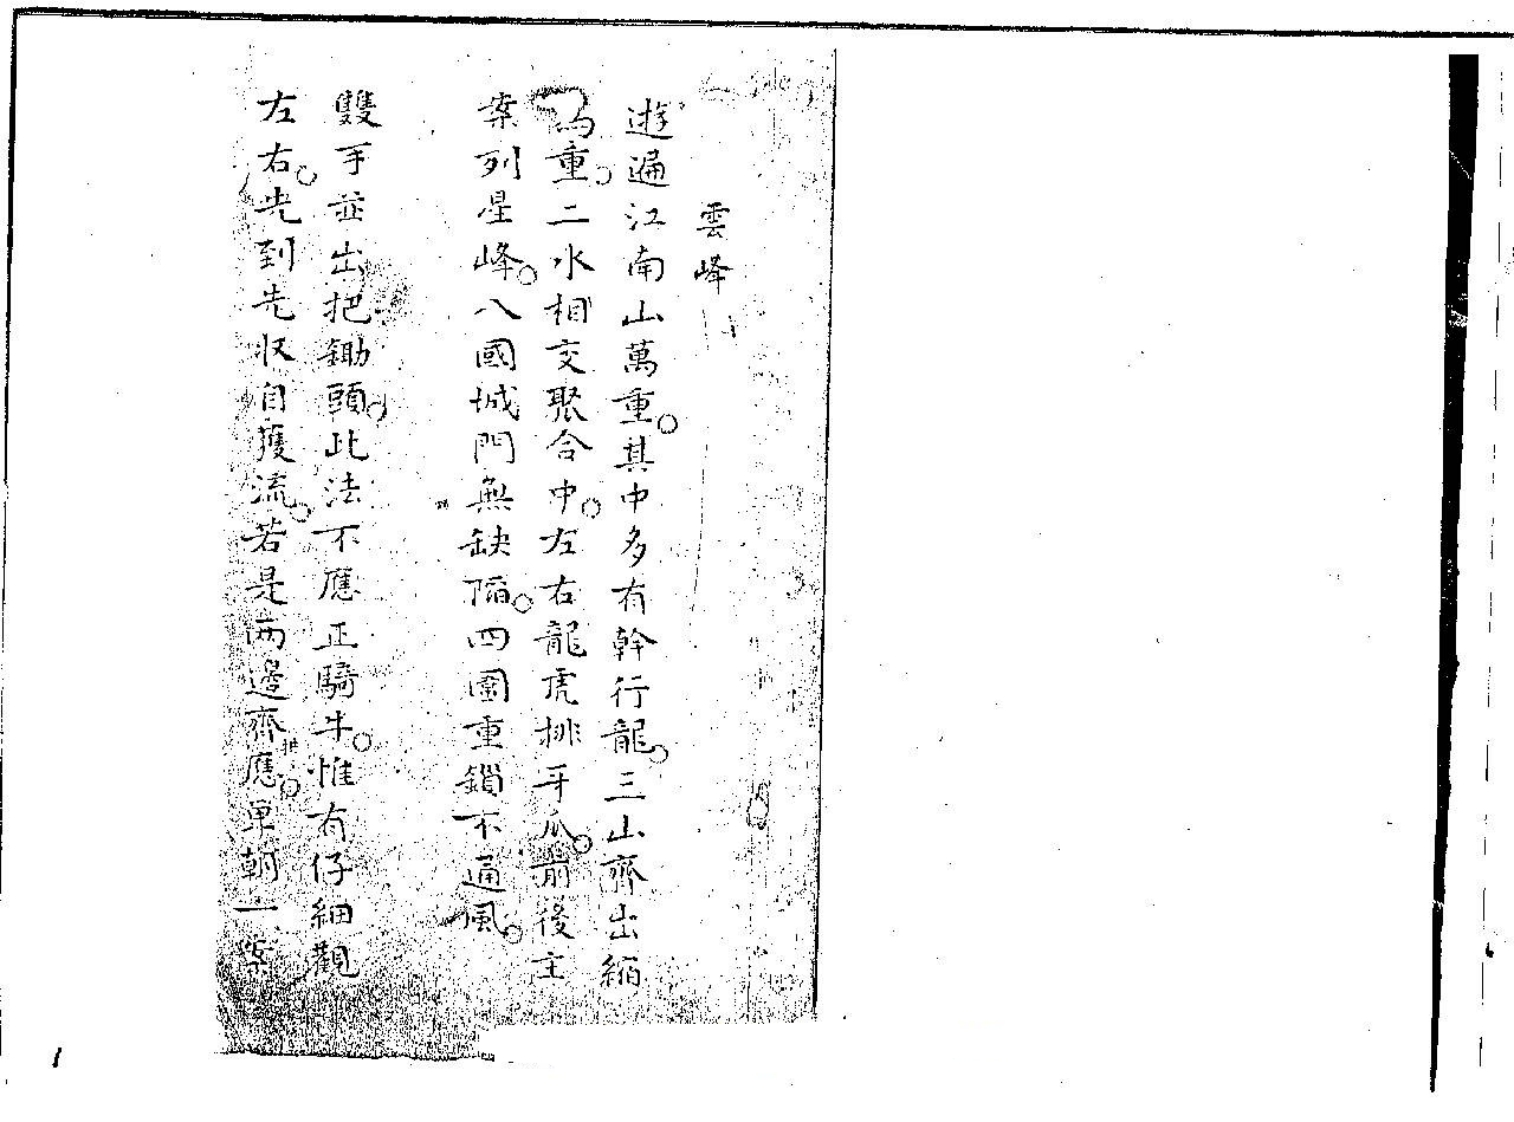 雲峰
遊遍江南山萬重○其中多有幹行龍○三山齊出縮
為重○二水相交聚合中○左右龍虎排牙爪○前後主
案列星峰○八國城門無缺陷○四圍重鎖不通風○
雙手並出把鋤頭○此法不應正騎牛○惟有仔細觀
左右○先到先收自獲流○若是兩邊齊應○單朝一案
1